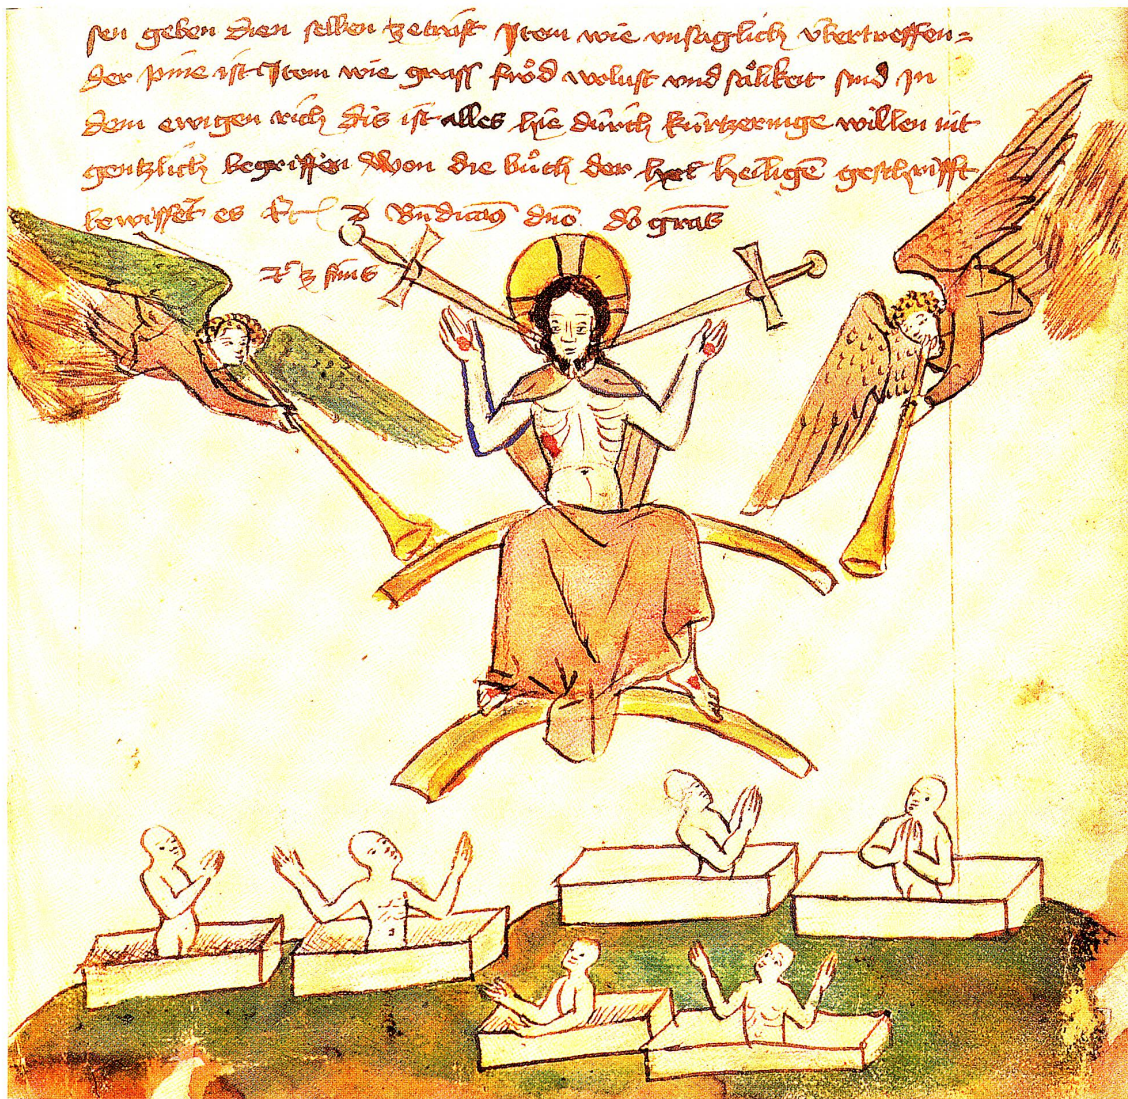 sen geben dien selben ze trost Item wie vnsaglich v̊bertreffen=
der pine ist Item wie gross frőd wolust vnd sålikeit sind in
dem ewigen rich dis ist alles hie durch kurtzerunge willen nit
gentzlich begriffen Won die bůch der hel heiligē geschrifft
bewisset es